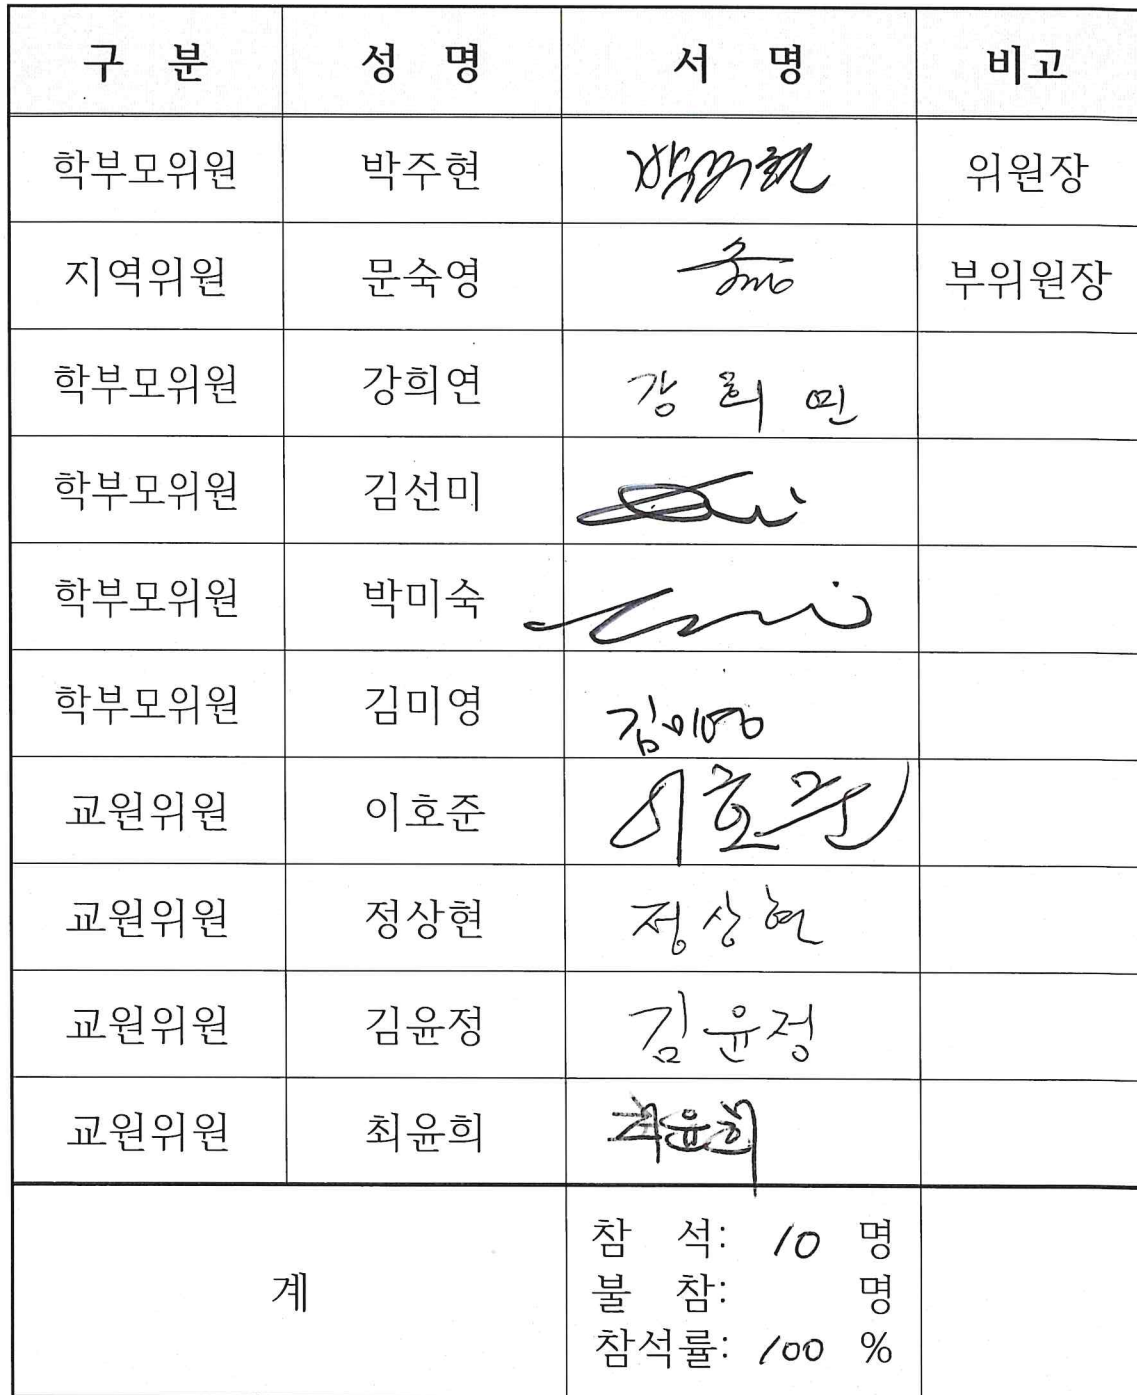 구 분 성 명 서 명 비고
학부모위원 박주현 박주현 위원장
지역위원 문숙영 부위원장
학부모위원 강희연 강희연
학부모위원 김선미
학부모위원 박미숙
학부모위원 김미영 김미영
교원위원 이호준 이호준
교원위원 정상현 정상현
교원위원 김윤정 김윤정
교원위원 최윤희 최윤희
계
참 석: 10 명
불 참: 명
참석률: 100 %